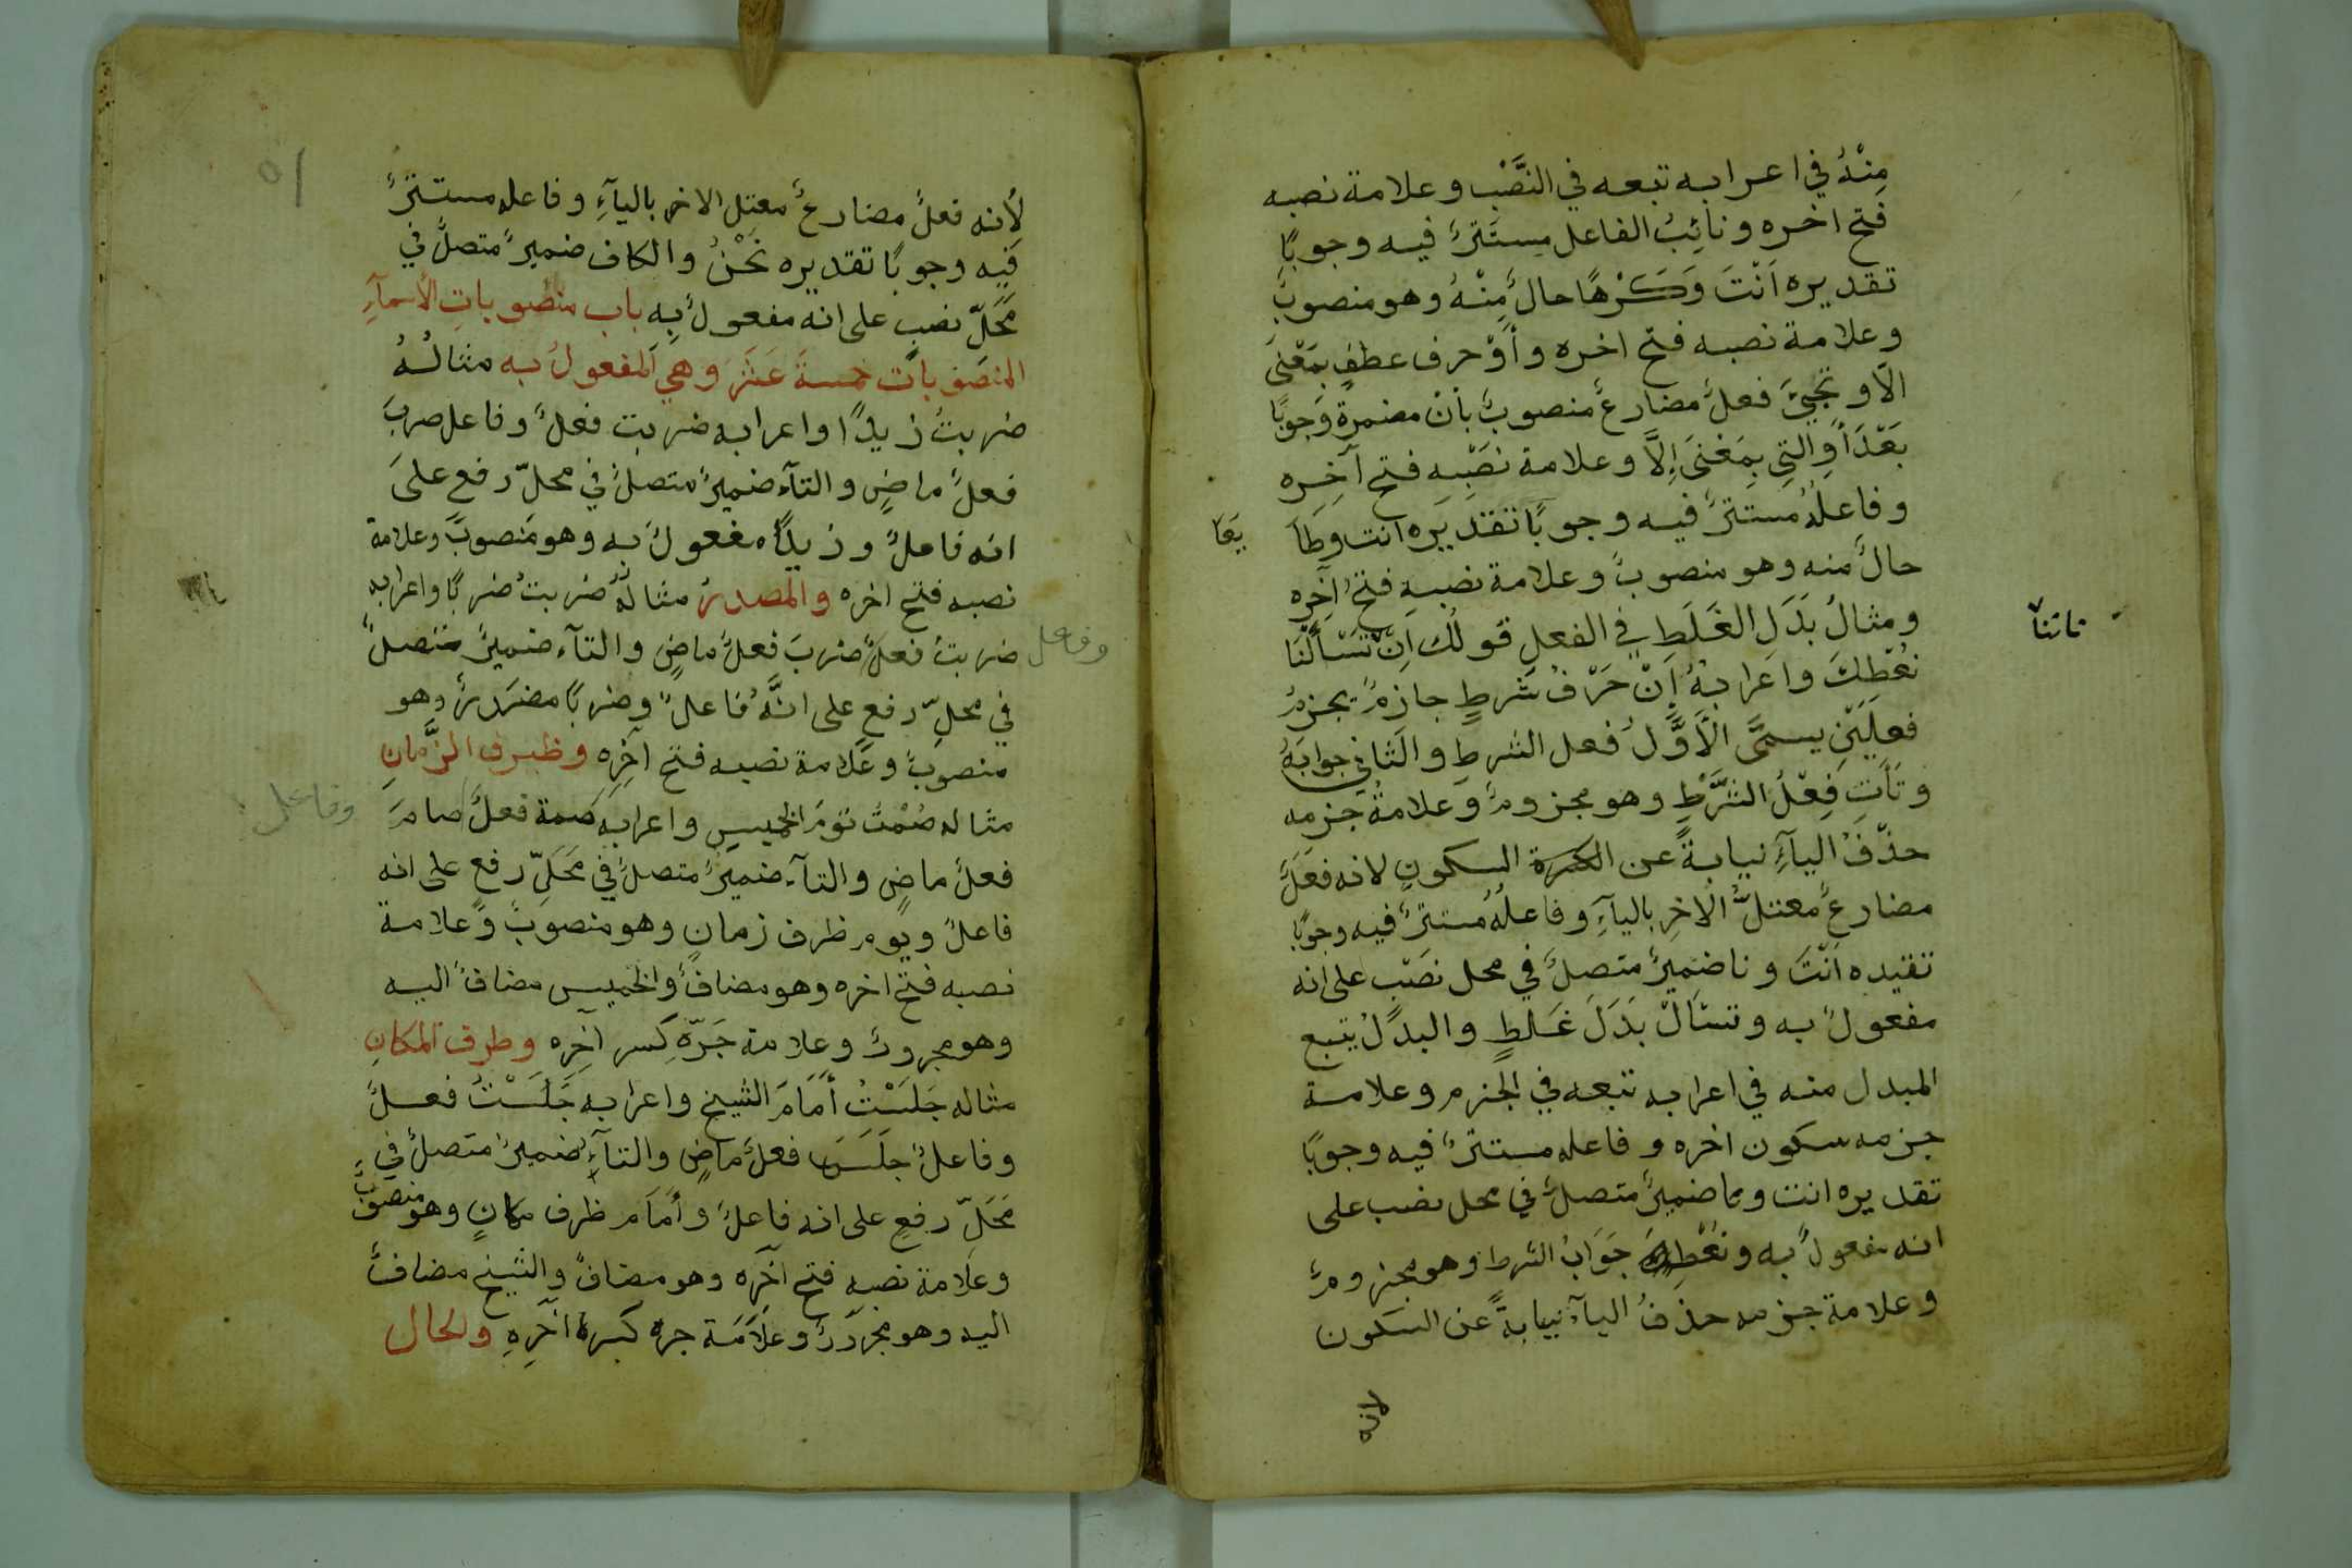 مِنْهُ في اعرابه تبعه في النَّصْب وعلامة نصبه
فتح اخره ونائِبُ الفاعل مستَترٌ فيه وجوبًا
تقديره اَنْتَ وَكَرْهًا حالٌ مِنْهُ وهو منصوبٌ
وعلامة نصبه فتح اخره وأوْ حرف عطفٍ بمَعْنىَ
الّا وتجيَ فعلٌ مضارعٌ منصوبٌ بأن مضمرة وَجوبًا
بَعْدَ اَوِ التِي بِمَعْنىَ اِلَّا وعلامة نصْبِه فتح آخِره
وفاعِلُهُ مستَترٌ فيه وجوبًا تقديَره انت وطَآ يَعًا
حالٌ منه وهو منصوبٌ وعلامة نصبهِ فتح اَخِره
ومثالُ بَدَلِ الغَلَطِ في الفعلِ قولُك اِنْ تَسْأَلْنَا
تاتنا
نعْطِكَ واعَرابهُ إنْ حَرْفُ شرطٍ جازمٌ يجزمُ
فعلَيَيْنِ يسمىَّ الاَوَّلُ فعل الشرطِ والثاني جوابَهُ
وتَأتِ فِعْلُ الشَّرْطِ وهو مجزومٌ وَعلامةُ جَزمه
حذفُ اليآءِ نيابةً عن الكسرة السكونِ لانه فعَلٌ
مضارعٌ معتلُّ الاخِرِ باليآءِ وفاعلُهُ مستترٌ فيه وجوبًا
تقيده اَنْتَ ونا ضميرٌ متصلٌ في محل نصَبْ على انه
مفعولٌ به وتسْاَلْ بَدَلَ غَلطٍ والبدَلُ يتبع
المبدل منه في اعرابه تبعه في الجزم وعلامة
جزمه سكون اخره وفاعله مستترٌ فيه وجوبًا
تقديره انت وما ضميرٌ متصلٌ في محل نصب على
انه مفعولٌ به ونُعْطِكَ جَوَابُ الشرط وهو مجزومٌ
وعلامة جزمه حذفُ اليآءِ نيابةً عن السكون
لانه
٥١
لأنه فعلٌ مضارعٌ معتل الاخر باليآءِ وفاعله مستترٌ
فيِه وجوبًا تقديره نَحْنُ والكاف ضميرٌ متصلٌ في
مَحَلّ نصبٍ على انه مفعولٌ بِه باب منصوباتِ الأسمآءِ
المنصَوبات خمسةَ عَشَرَ وهي اَلمفعولُ به مثالُهُ
ضربتُ زيدًا واعرابه ضربت فعلٌ وفاعل ضربَ
فعلٌ ماضٍ والتآء ضميرٌ متصلٌ في محلّ رفعٍ علىَ
انه فاعلٌ وزيدًا مفعولٌ به وهو منصوبٌ وعلامة
نصبه فتح اخره والمصدرُ مثالهُ ضربتُ ضربًا واعرابه
ضربتُ فعلٌ ضربَ فعلٌ ماضٍ والتآء ضميرٌ متصلٌ
وفاعل
في محلّ رفعٍ على انَّهُ فاعلٌ وضربًا مصَدرٌ وهو
منصوبٌ وعَلامة نصبه فتح آخِرِه وظرف الزَّمانِ
مثاله صُمْتُ يَومَ الخميسِ واعرابه صمة فعلٌ صامَ
وفاعل
فعلٌ ماضٍ والتآء ضميرٌ متصلٌ في مَحَلِّ رفعٍ على انه
فاعلٌ ويوم ظرف زمانٍ وهو منصوبٌ وعلامة
نصبه فتح اخره وهو مضافٌ والخميس مضافٌ اليه
وهو مجرورٌ وعلامة جَرّهِ كَسر آخِرِه وظرف المكانِ
مثاله جَلسَتْتُ أمَامَ الشيخ واعرابه جَلَسَتْتُ فعلٌ
وفاعلٌ جلَسَ فعلٌ ماضٍ والتآءِ ضميرٌ متصلٌ في
مَحَلِّ رفعٍ على انه فاعلٌ وأمَامَ ظرف مكانٍ وهو منصوبٌ
وعلامة نصبهِ فتح آخَرِه وهو مضافٌ والشيخ مضافٌ
اليه وهو مجرَورٌ وعلاَمَة جره كسرة آخِرِهِ والحال